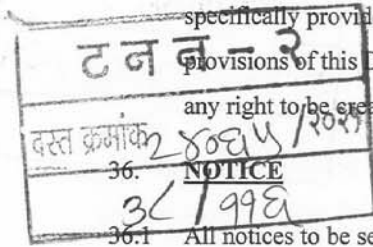 specifically provid
ट न न - २
provisions of this D
any right to be crea
दस्त क्रमांक २४०६५ /२०२१
36. NOTICE
३८ / ११६
36.1 All notices to be se